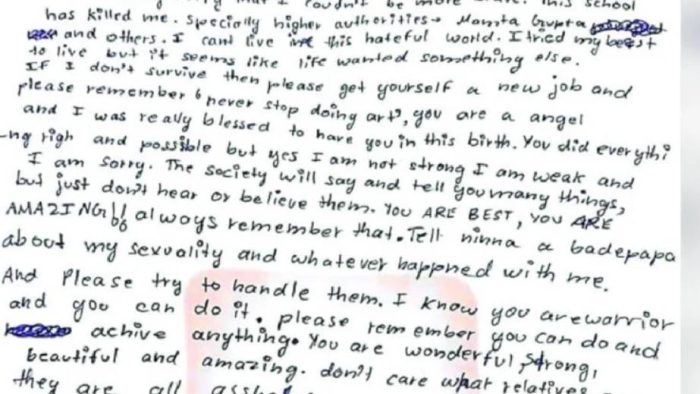 that I couldn't be more This school
has killed me. Specially higher authorities → Mamta Gupta
and others. I cant live in this hateful world. I tried my best
to live but it seems like life wanted something else.
If I don't survive then please get yourself a new job and
please remember & never stop doing art, you are a angel
and I was really blessed to have you in this birth. You did everythi
-ng righ and possible but yes I am not strong I am weak and
I am sorry. The society will say and tell you many things,
but just don't hear or believe them. YOU ARE BEST, YOU ARE
AMAZING!! always remember that. Tell ninna a badepapa
about my sexuality and whatever happned with me.
And Please try to handle them. I know you are warrior
and you can do it. please remember you can do and
achive anything. You are wonderful, strong,
beautiful and amazing. don't care what relatives
they are all